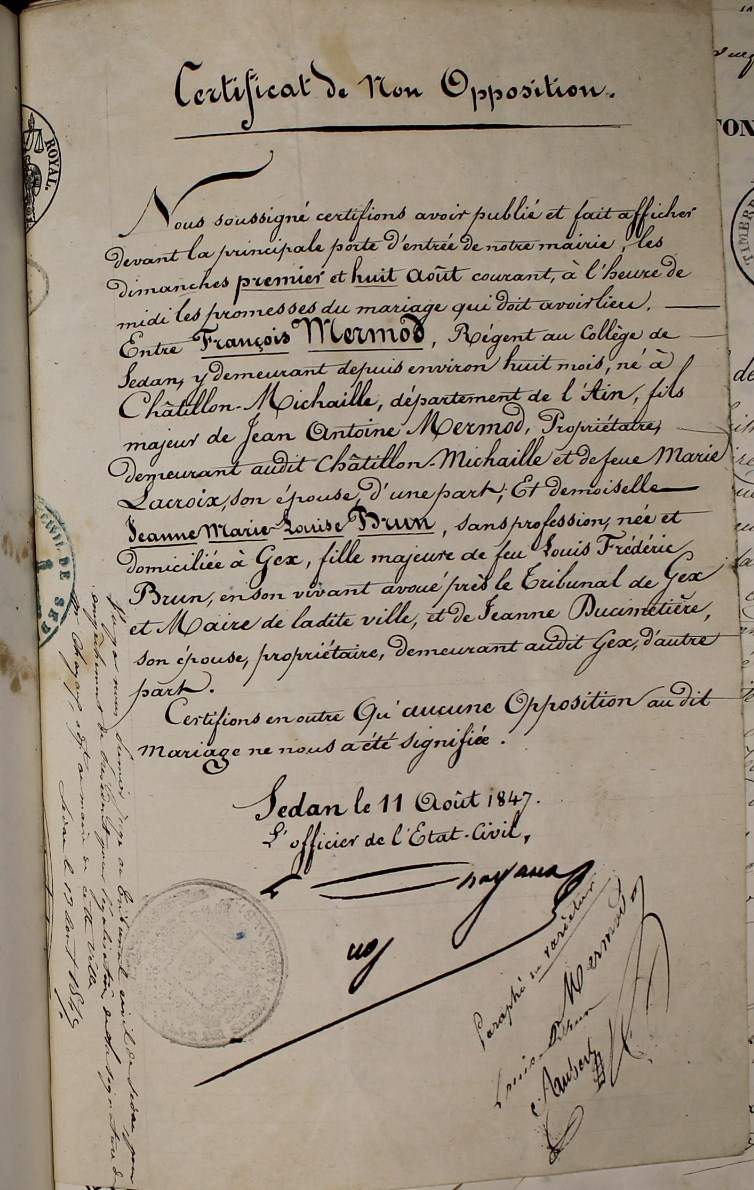 Certificat de Non Opposition.
Nous soussigné certifions avoir publié et fait afficher
devant la principale porte d'entrée de notre mairie, les
dimanches premier et huit Août courant, à l'heure de
midi les promesses du mariage qui doit avoir lieu.
Entre François Mermod, Régent au Collège de
Sedan, y demeurant depuis environ huit mois, né à
Châtillon-Michaille, département de l'Ain, fils
majeur de Jean Antoine Mermod, Propriétaire,
demeurant audit Châtillon-Michaille et de feue Marie
Lacroix, son épouse, d'une part; Et demoiselle
Jeanne Marie-Louise Brun, sans profession, née et
domiciliée à Gex, fille majeure de feu Louis Frédéric
Brun, en son vivant avoué près le Tribunal de Gex
et Maire de ladite ville, et de Jeanne Ducimetière,
son épouse, propriétaire, demeurant audit Gex, d'autre
part.
Certifions en outre Qu'aucune Opposition au dit
mariage ne nous a été signifiée.
Sedan le 11 Août 1847.
L'officier de l'Etat-Civil,
Paraphé ne varietur
Mermod
Louise Brun
Aubert
ROYAL.
CIVIL DE SED
TIMBRE
Vu par nous juge au Tribunal civil de Sedan pour
légalisation de la signature de
Mr
de cette ville
Sedan le 12 Août 1847